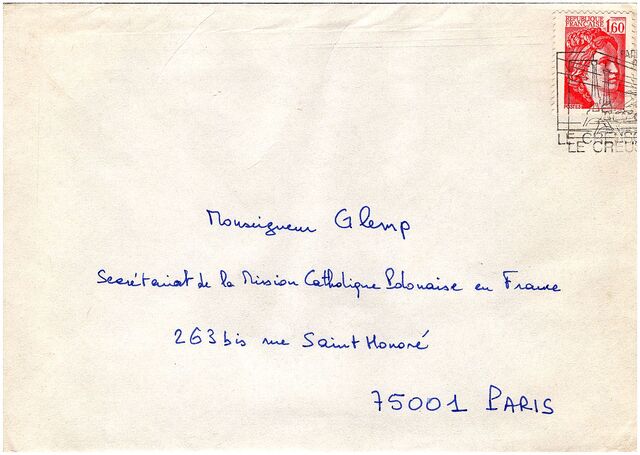 REPUBLIQUE
FRANÇAISE 1,60
LE CREUS
LE CREUS
Monseigneur Glemp
Secrétariat de la Mission Catholique Polonaise en France
263 bis rue Saint Honoré
75001 PARIS